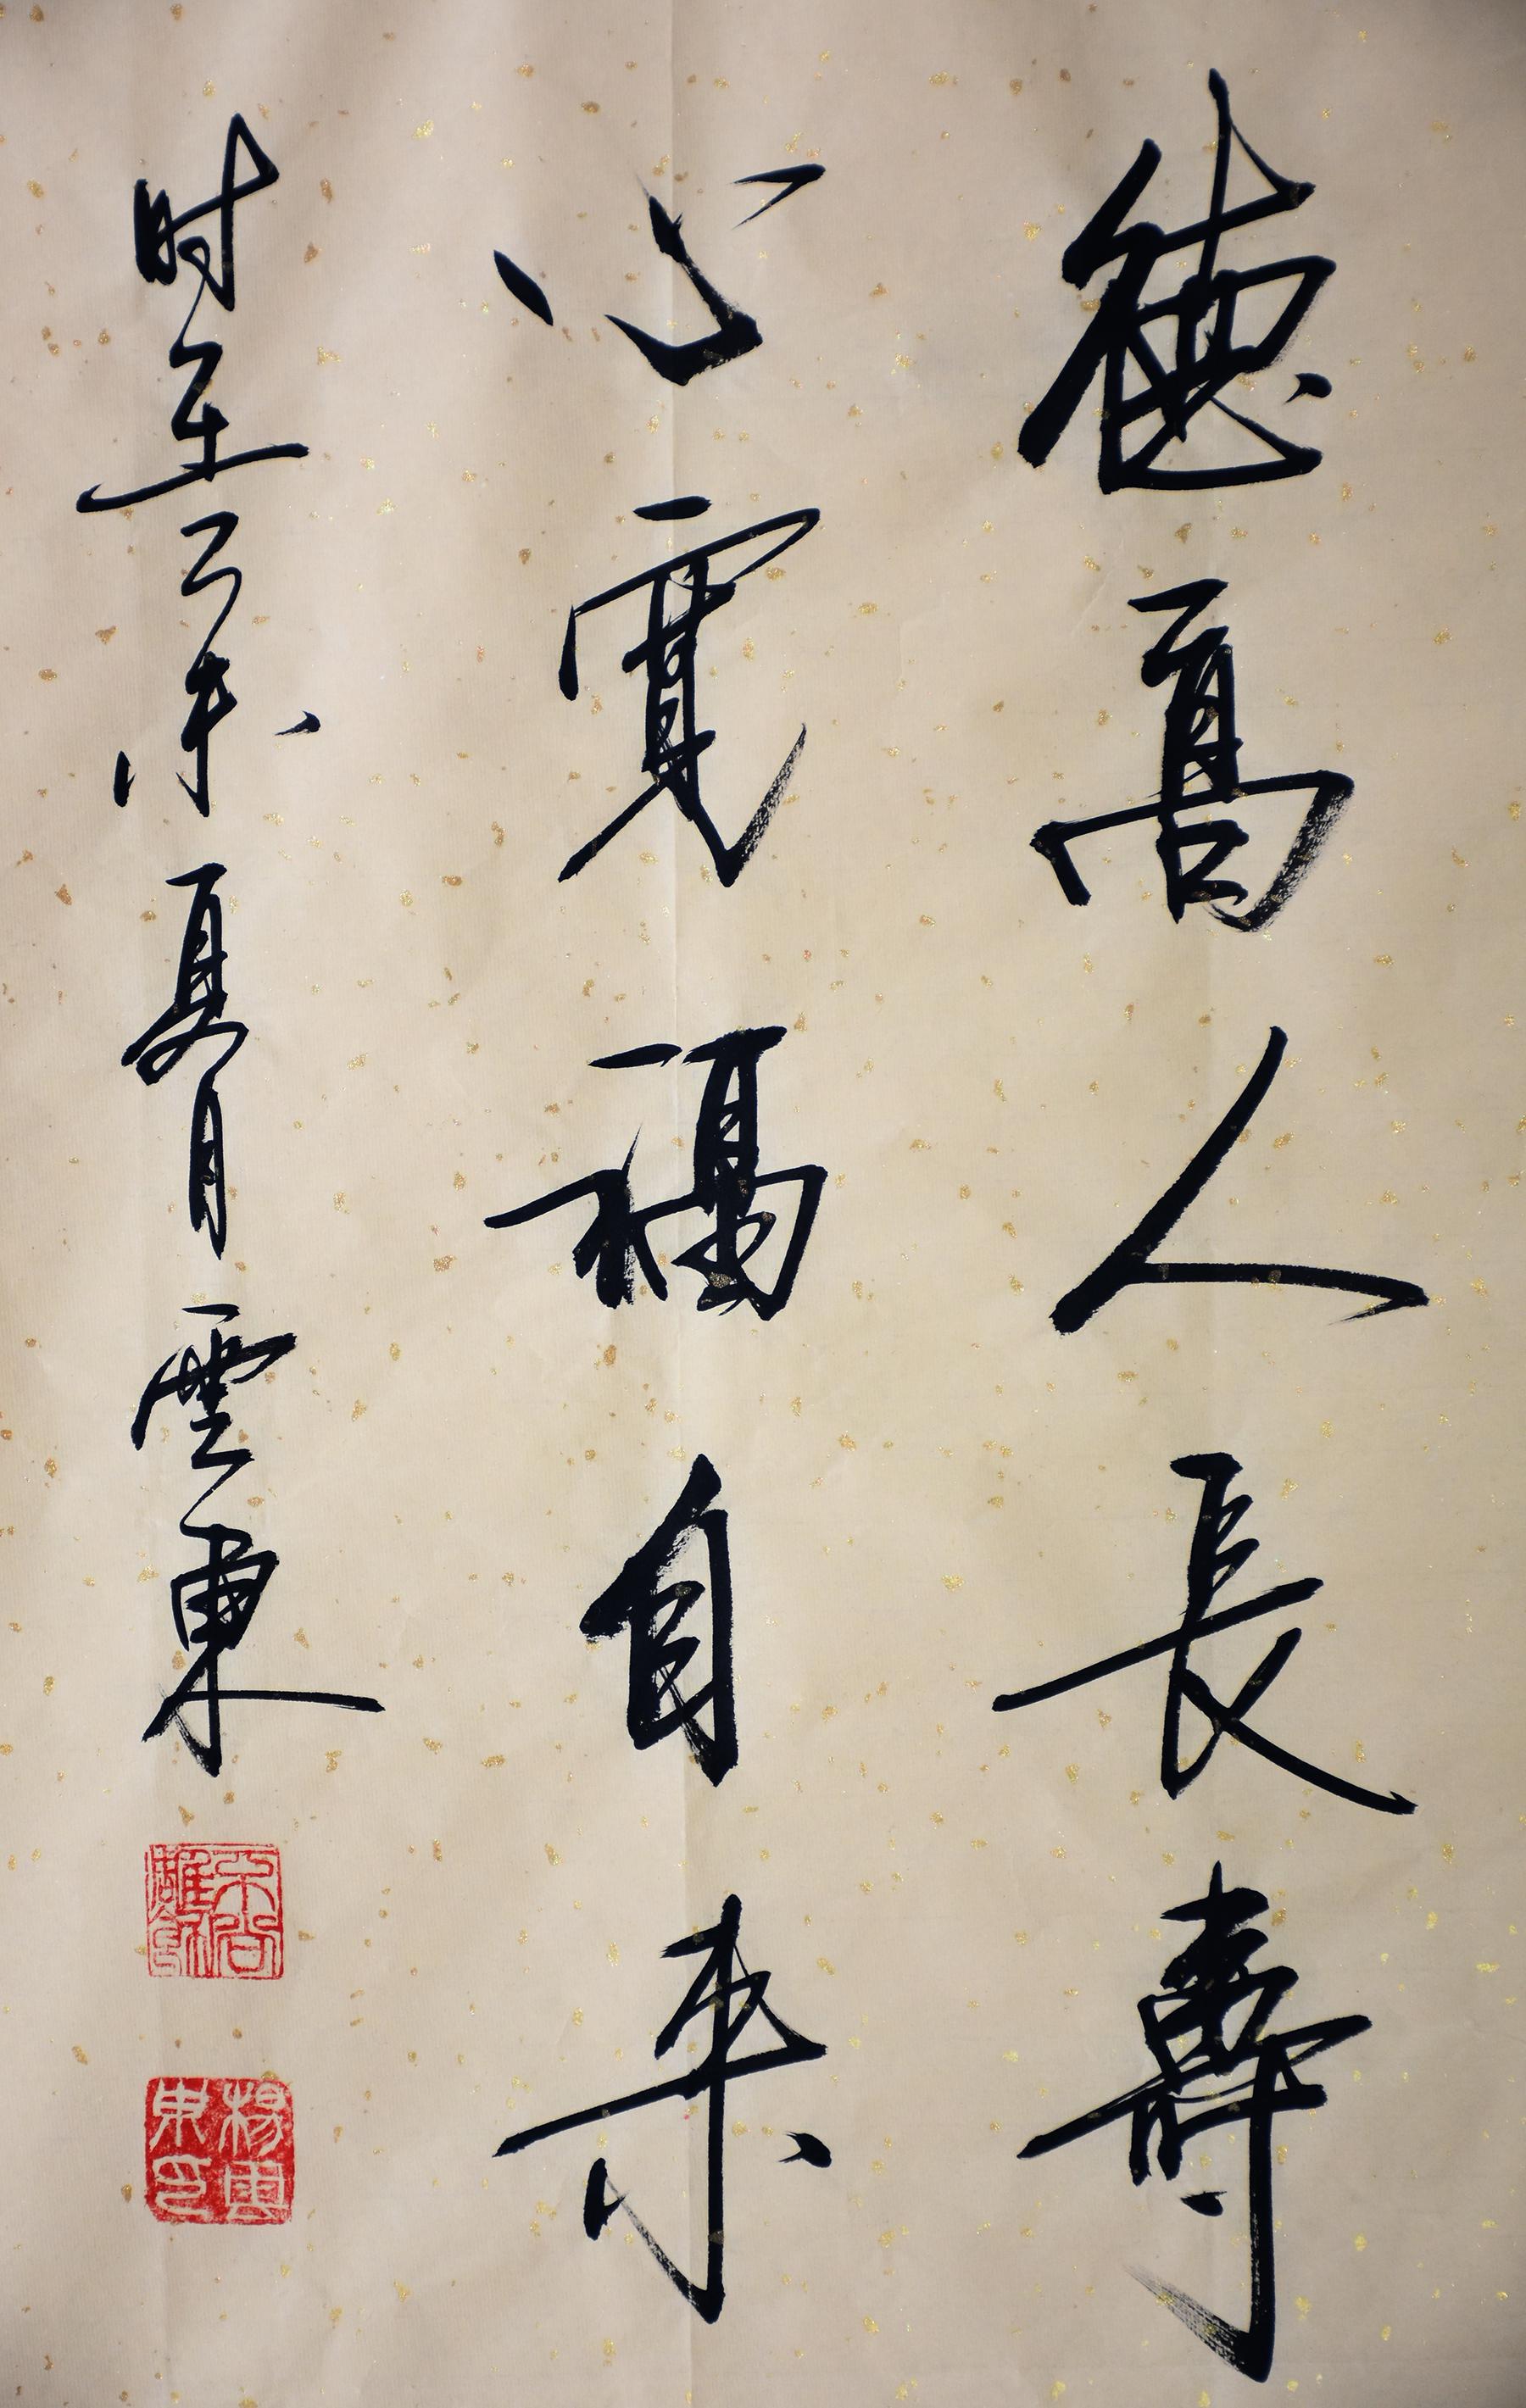 德高人長壽
心寬福自来
时在乙未夏月雲東
楊雲東印